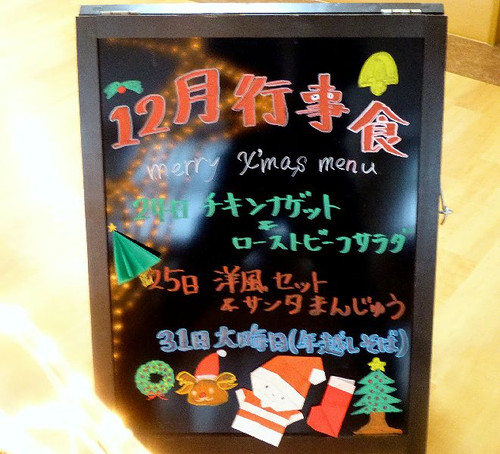 12月行事食
merry X'mas menu
24日 チキンナゲット
&
ローストビーフサラダ
25日 洋風セット
& サンタまんじゅう
31日 大晦日(年越しそば)